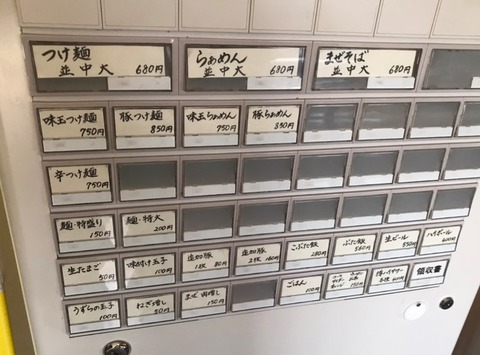 つけ麺
並中大 680円
らぁめん
並中大 680円
まぜそば
並中大 680円
味玉つけ麺
750円
豚つけ麺
850円
味玉らぁめん
750円
豚らぁめん
850円
辛つけ麺
750円
麺・特盛り
150円
麺・特大
200円
生たまご
50円
味付け玉子
100円
追加豚
1枚 80円
追加豚
2枚 160円
こぶた飯
280円
ぶた飯
560円
生ビール
550円
ハイボール
400円
うずらの玉子
100円
ねぎ増し
50円
150円
ごはん
100円
領収書